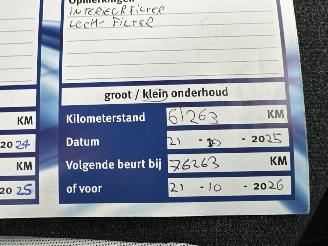 Opmerkingen
INTERIEURFILTER
LUCHT-FILTER
groot / klein onderhoud
Kilometerstand 61263 KM
KM
Datum 21 - 10 - 2025
2024
Volgende beurt bij 76263 KM
KM
of voor 21 - 10 - 2026
2025